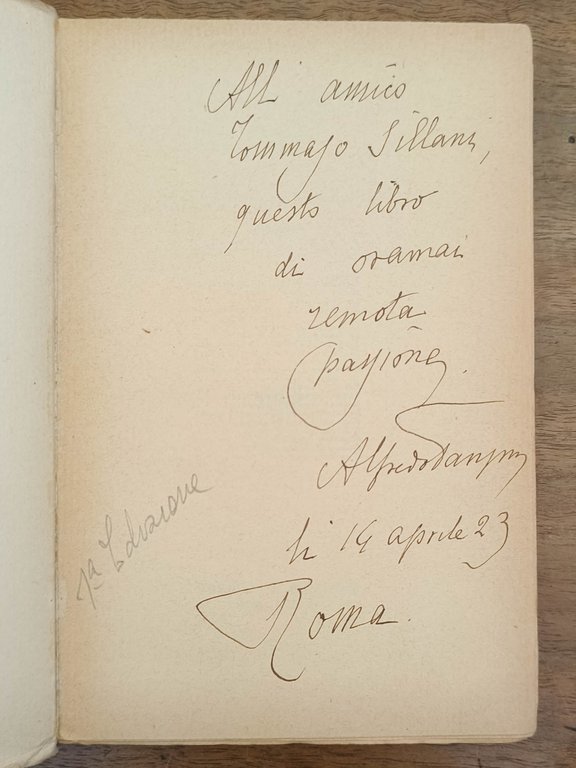 All' amico
Tommaso Sillani,
questo libro
di oramai
remota
passione.
Alfredo Panzini
li 14 aprile 23
Roma.
1ª Edizione